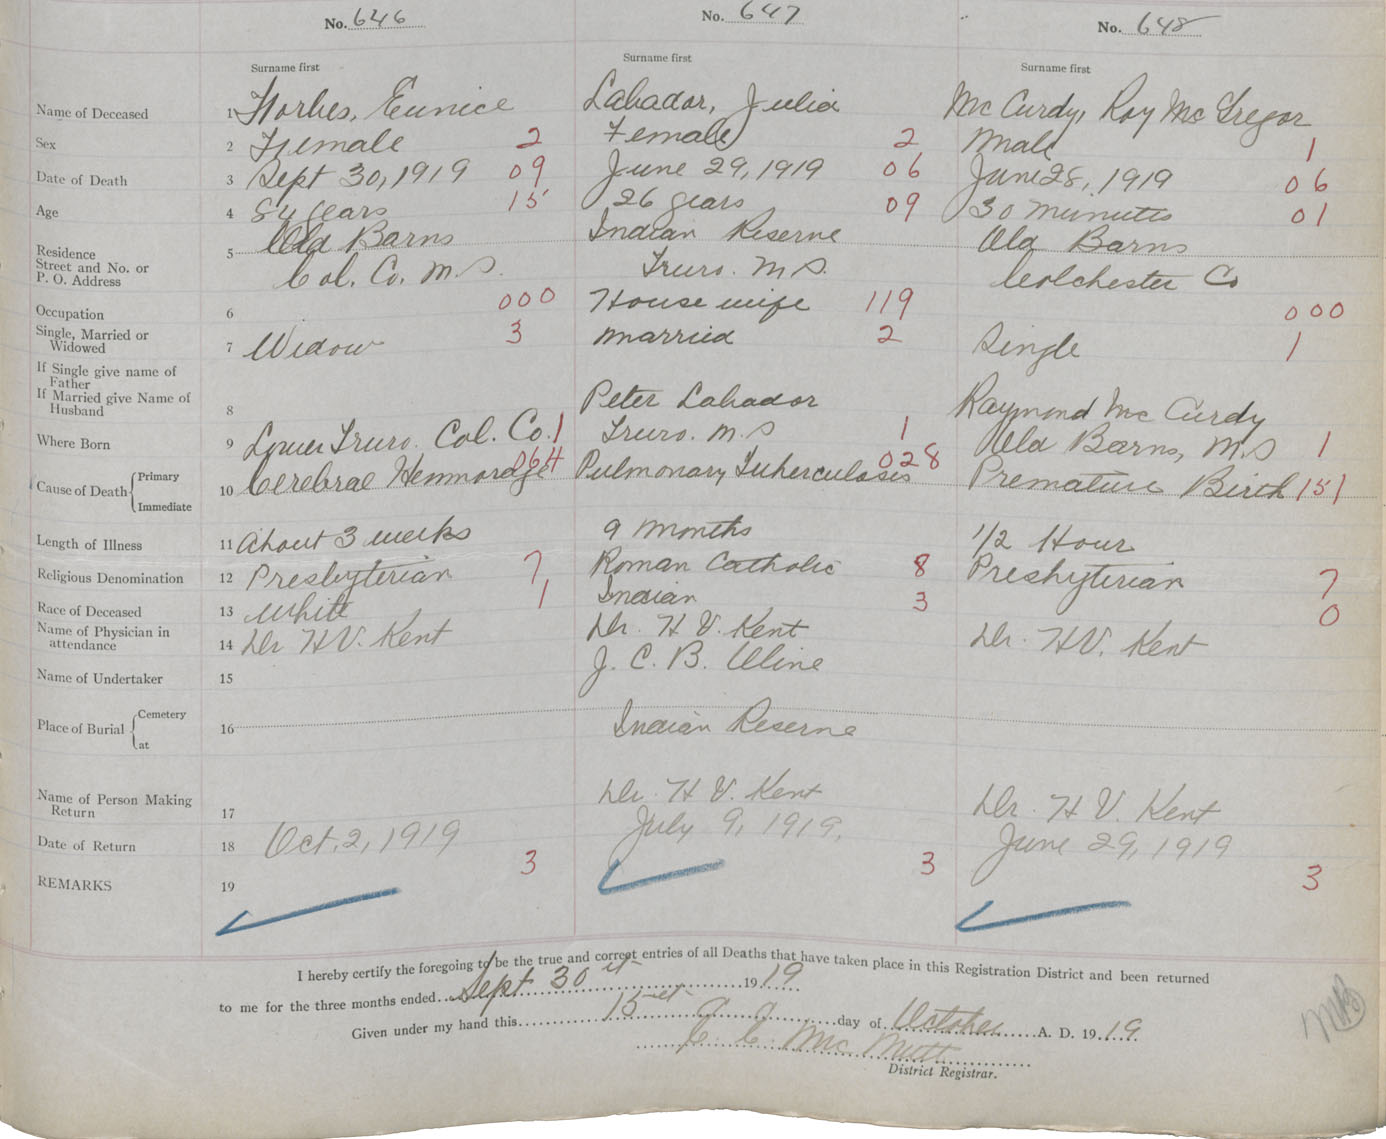 No. 646 No. 647 No. 648
Surname first Surname first Surname first
Name of Deceased 1 Forbes, Eunice Labador, Julia McCurdy, Roy McGregor
Sex 2 Female 2 Female 2 Male 1
Date of Death 3 Sept 30, 1919 09 June 29, 1919 06 June 28, 1919 06
Age 4 84 years 15 26 years 09 30 minutes 01
Residence 5 Old Barns Indian Reserve Old Barns
Street and No. or
P. O. Address Col. Co. N.S. Truro. N.S. Colchester Co
Occupation 6 000 House wife 119 000
Single, Married or
Widowed 7 Widow 3 married 2 Single 1
If Single give name of
Father
If Married give Name of
Husband 8 Peter Labador Raymond McCurdy
Where Born 9 Lower Truro. Col. Co. 1 Truro. N.S 1 Old Barns, N.S 1
Cause of Death Primary 10 Cerebral Hemmoradge 064 Pulmonary Tuberculosis 028 Premature Birth 151
Immediate
Length of Illness 11 about 3 weeks 9 months 1/2 Hour
Religious Denomination 12 Presbyterian 7 Roman Catholic 8 Presbyterian 7
Race of Deceased 13 White 1 Indian 3 0
Name of Physician in
attendance 14 Dr H V. Kent Dr. H V. Kent Dr. H V. Kent
Name of Undertaker 15 J. C. B. Oline
Place of Burial Cemetery 16 Indian Reserve
at
Name of Person Making
Return 17 Dr. H V. Kent Dr. H V. Kent
Date of Return 18 Oct. 2, 1919 July 9, 1919. June 29, 1919
3 3 3
REMARKS 19
I hereby certify the foregoing to be the true and correct entries of all Deaths that have taken place in this Registration District and been returned
to me for the three months ended Sept 30th 1919
Given under my hand this 15th day of October A. D. 1919
C. C. McNutt
District Registrar.